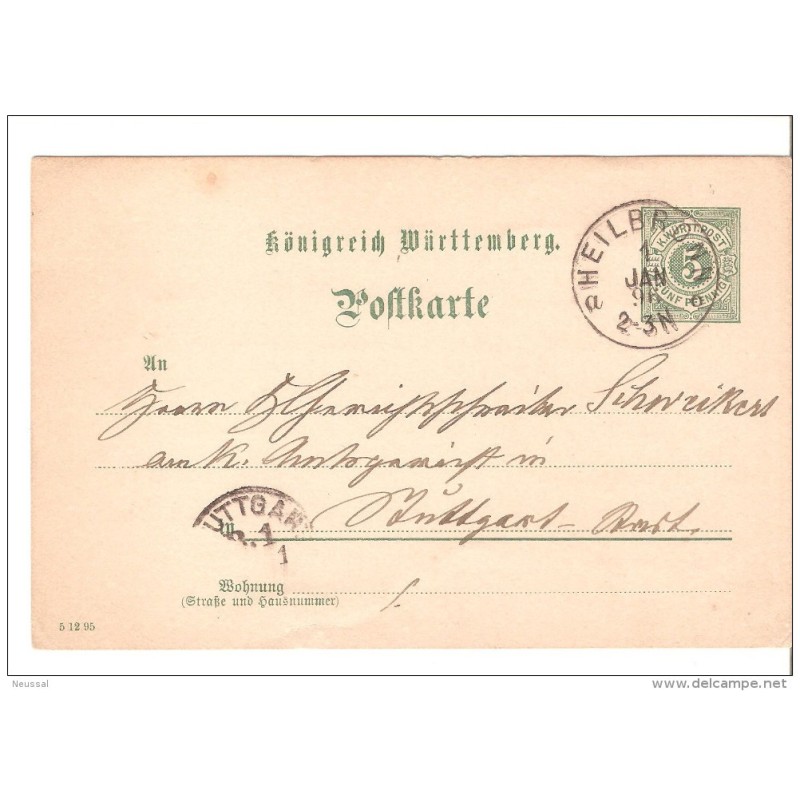 Königreich Württemberg.
Postkarte
K.WÜRTT.POST
5
FÜNF PFENNIG
HEILBRO
1
JAN
96
2-3N
An
Herrn Gerichtsschreiber Schweikert
am K. Amtsgericht in
in Stuttgart-Stadt.
UTTGAR
1
1
Wohnung
(Straße und Hausnummer)
5 12 95
Neussal
www.delcampe.net